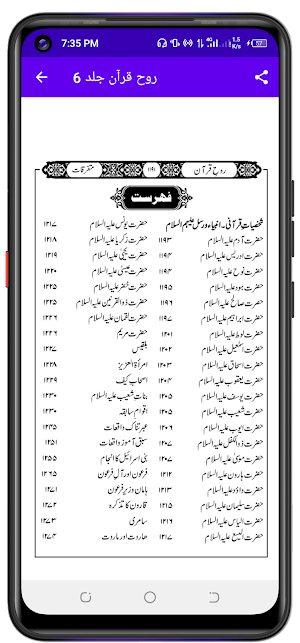 7:35 PM 4G 1.5 K/s 57
روح قرآن جلد 6
روح قرآن ۱۱۹۱ متفرقات
فہرست
شخصیات قرآنی۔ انبیاء و رسل علیہم السلام
حضرت آدم علیہ السلام ۱۱۹۳
حضرت ادریس علیہ السلام ۱۱۹۴
حضرت نوح علیہ السلام ۱۱۹۴
حضرت ہود علیہ السلام ۱۱۹۵
حضرت صالح علیہ السلام ۱۱۹۶
حضرت ابراہیم علیہ السلام ۱۱۹۷
حضرت لوط علیہ السلام ۱۲۰۱
حضرت اسمٰعیل علیہ السلام ۱۲۰۲
حضرت اسحاق علیہ السلام ۱۲۰۳
حضرت یعقوب علیہ السلام ۱۲۰۴
حضرت یوسف علیہ السلام ۱۲۰۵
حضرت شعیب علیہ السلام ۱۲۰۵
حضرت ایوب علیہ السلام ۱۲۰۶
حضرت ذوالکفل علیہ السلام ۱۲۰۷
حضرت موسیٰ علیہ السلام ۱۲۰۷
حضرت ہارون علیہ السلام ۱۲۱۲
حضرت داؤد علیہ السلام ۱۲۱۳
حضرت سلیمان علیہ السلام ۱۲۱۵
حضرت الیاس علیہ السلام ۱۲۱۶
حضرت الیسع علیہ السلام ۱۲۱۷
حضرت یونس علیہ السلام ۱۲۱۷
حضرت زکریا علیہ السلام ۱۲۱۸
حضرت یحییٰ علیہ السلام ۱۲۱۹
حضرت عیسیٰ علیہ السلام ۱۲۲۰
حضرت خضر علیہ السلام ۱۲۲۵
حضرت ذوالقرنین علیہ السلام ۱۲۲۵
حضرت لقمان علیہ السلام ۱۲۲۶
حضرت مریم ۱۲۲۶
بلقیس ۱۲۲۷
امرأۃ العزیز ۱۲۲۸
اصحاب کہف ۱۲۲۹
بنات شعیب علیہ السلام ۱۲۳۰
اقوام سابقہ ۱۲۳۰
عبرتناک واقعات ۱۲۴۵
سبق آموز واقعات ۱۲۵۱
بنی اسرائیل کا انجام ۱۲۵۵
فرعون اور آل فرعون ۱۲۶۵
ہامان وزیر فرعون ۱۲۷۱
قارون کا تذکرہ ۱۲۷۲
سامری ۱۲۷۳
ھاروت اور ماروت ۱۲۷۴